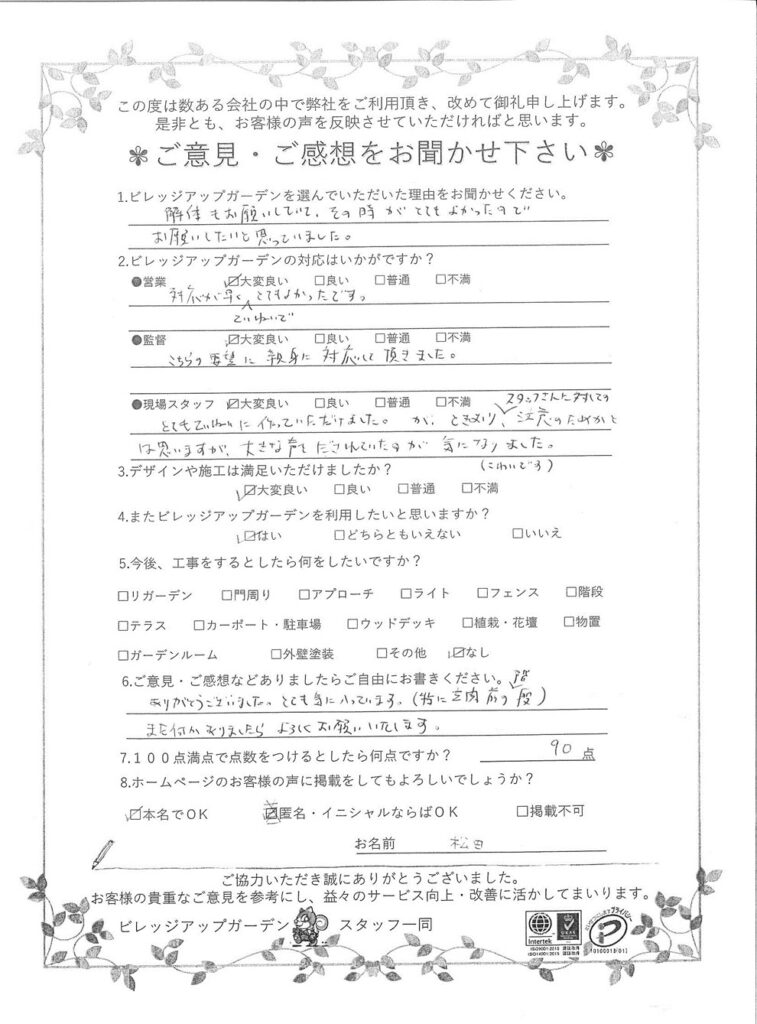 この度は数ある会社の中で弊社をご利用頂き、改めて御礼申し上げます。
是非とも、お客様の声を反映させていただければと思います。
ご意見・ご感想をお聞かせ下さい
1.ビレッジアップガーデンを選んでいただいた理由をお聞かせください。
解体もお願いしていて、その時がとてもよかったので
お願いしたいと思っていました。
2.ビレッジアップガーデンの対応はいかがですか？
●営業 ☑大変良い □良い □普通 □不満
対応が早く とてもよかったです。
ていねいで
●監督 ☑大変良い □良い □普通 □不満
こちらの要望に親身に対応して頂きました。
●現場スタッフ ☑大変良い □良い □普通 □不満
スタッフさんに対しての
とてもていねいに作っていただけました。が、ときおり、 のためかと
は思いますが、大きな声をだされていたのが気になりました。
(こわいです)
3.デザインや施工は満足いただけましたか？
☑大変良い □良い □普通 □不満
4.またビレッジアップガーデンを利用したいと思いますか？
☑はい □どちらともいえない □いいえ
5.今後、工事をするとしたら何をしたいですか？
□リガーデン □門周り □アプローチ □ライト □フェンス □階段
□テラス □カーポート・駐車場 □ウッドデッキ □植栽・花壇 □物置
□ガーデンルーム □外壁塗装 □その他 ☑なし
6.ご意見・ご感想などありましたらご自由にお書きください。
ありがとうございました。とても気に入っています。(特に玄関前の階段)
また何かありましたらよろしくお願いいたします。
7.１００点満点で点数をつけるとしたら何点ですか？ 90 点
8.ホームページのお客様の声に掲載をしてもよろしいでしょうか？
☑本名でOK ☑匿名・イニシャルならばOK □掲載不可
お名前 松田
ご協力いただき誠にありがとうございました。
お客様の貴重なご意見を参考にし、益々のサービス向上・改善に活かしてまいります。
ビレッジアップガーデン スタッフ一同
Intertek